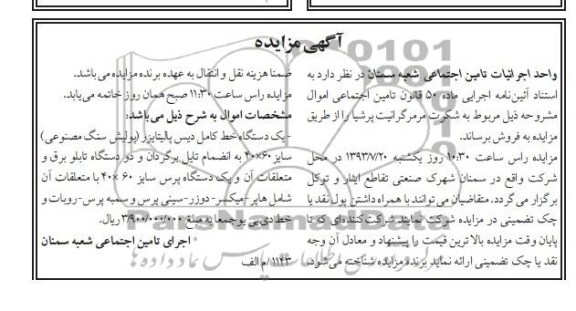 آگهی مزایده
واحد اجرائیات تامین اجتماعی شعبه سمنان در نظر دارد به
استناد آئین‌نامه اجرایی ماده ۵۰ قانون تامین اجتماعی اموال
مشروحه ذیل مربوط به شکرت مرمرگرانیت پرشیا را از طریق
مزایده به فروش برساند.
مزایده راس ساعت ۱۰:۳۰ روز یکشنبه ۱۳۹۳/۷/۲۰ در محل
شرکت واقع در سمنان شهرک صنعتی تقاطع ایثار و توکل
برگزار می‌گردد. متقاضیان می‌توانند با همراه داشتن پول نقد یا
چک تضمینی در مزایده شرکت نمایند شرکت‌کننده‌ای که تا
پایان وقت مزایده بالاترین قیمت را پیشنهاد و معادل آن وجه
نقد یا چک تضمینی ارائه نماید برنده مزایده شناخته می‌شود.
ضمنا هزینه نقل و انتقال به عهده برنده مزایده می‌باشد.
مزایده راس ساعت ۱۱:۳۰ صبح همان روز خاتمه می‌یابد.
مشخصات اموال به شرح ذیل می‌باشد:
-یک دستگاه خط کامل دیس پالیتایزر (پولیش سنگ مصنوعی)
سایز ۶۰×۴۰ به انضمام تایل برگردان و دو دستگاه تابلو برق و
متعلقات آن و یک دستگاه پرس سایز ۶۰ ×۴۰ با متعلقات آن
شامل هاپر-میکسر-دوزر-سینی پرس و سمبه پرس-روبات و
خط دی بی یو جمعا به مبلغ ۳/۹۰۰/۰۰۰/۰۰۰ ریال.
اجرای تامین اجتماعی شعبه سمنان
۱۱۴۳/م الف
ParsNamadData